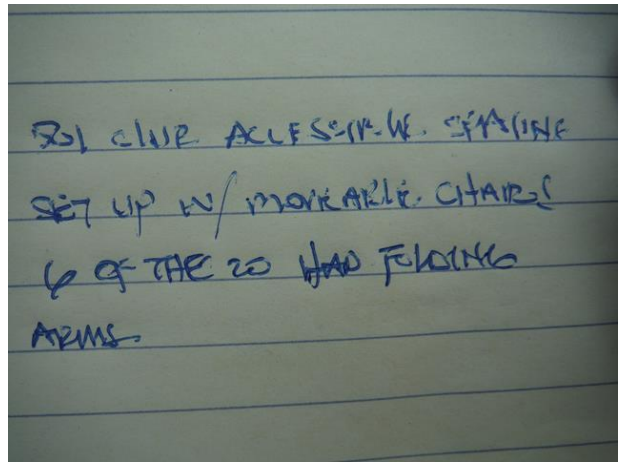 CLUB ACCESSIBLE SEATING
SET UP W/ MOVEABLE CHAIRS
6 OF THE 20 HAD FOLDING
ARMS.